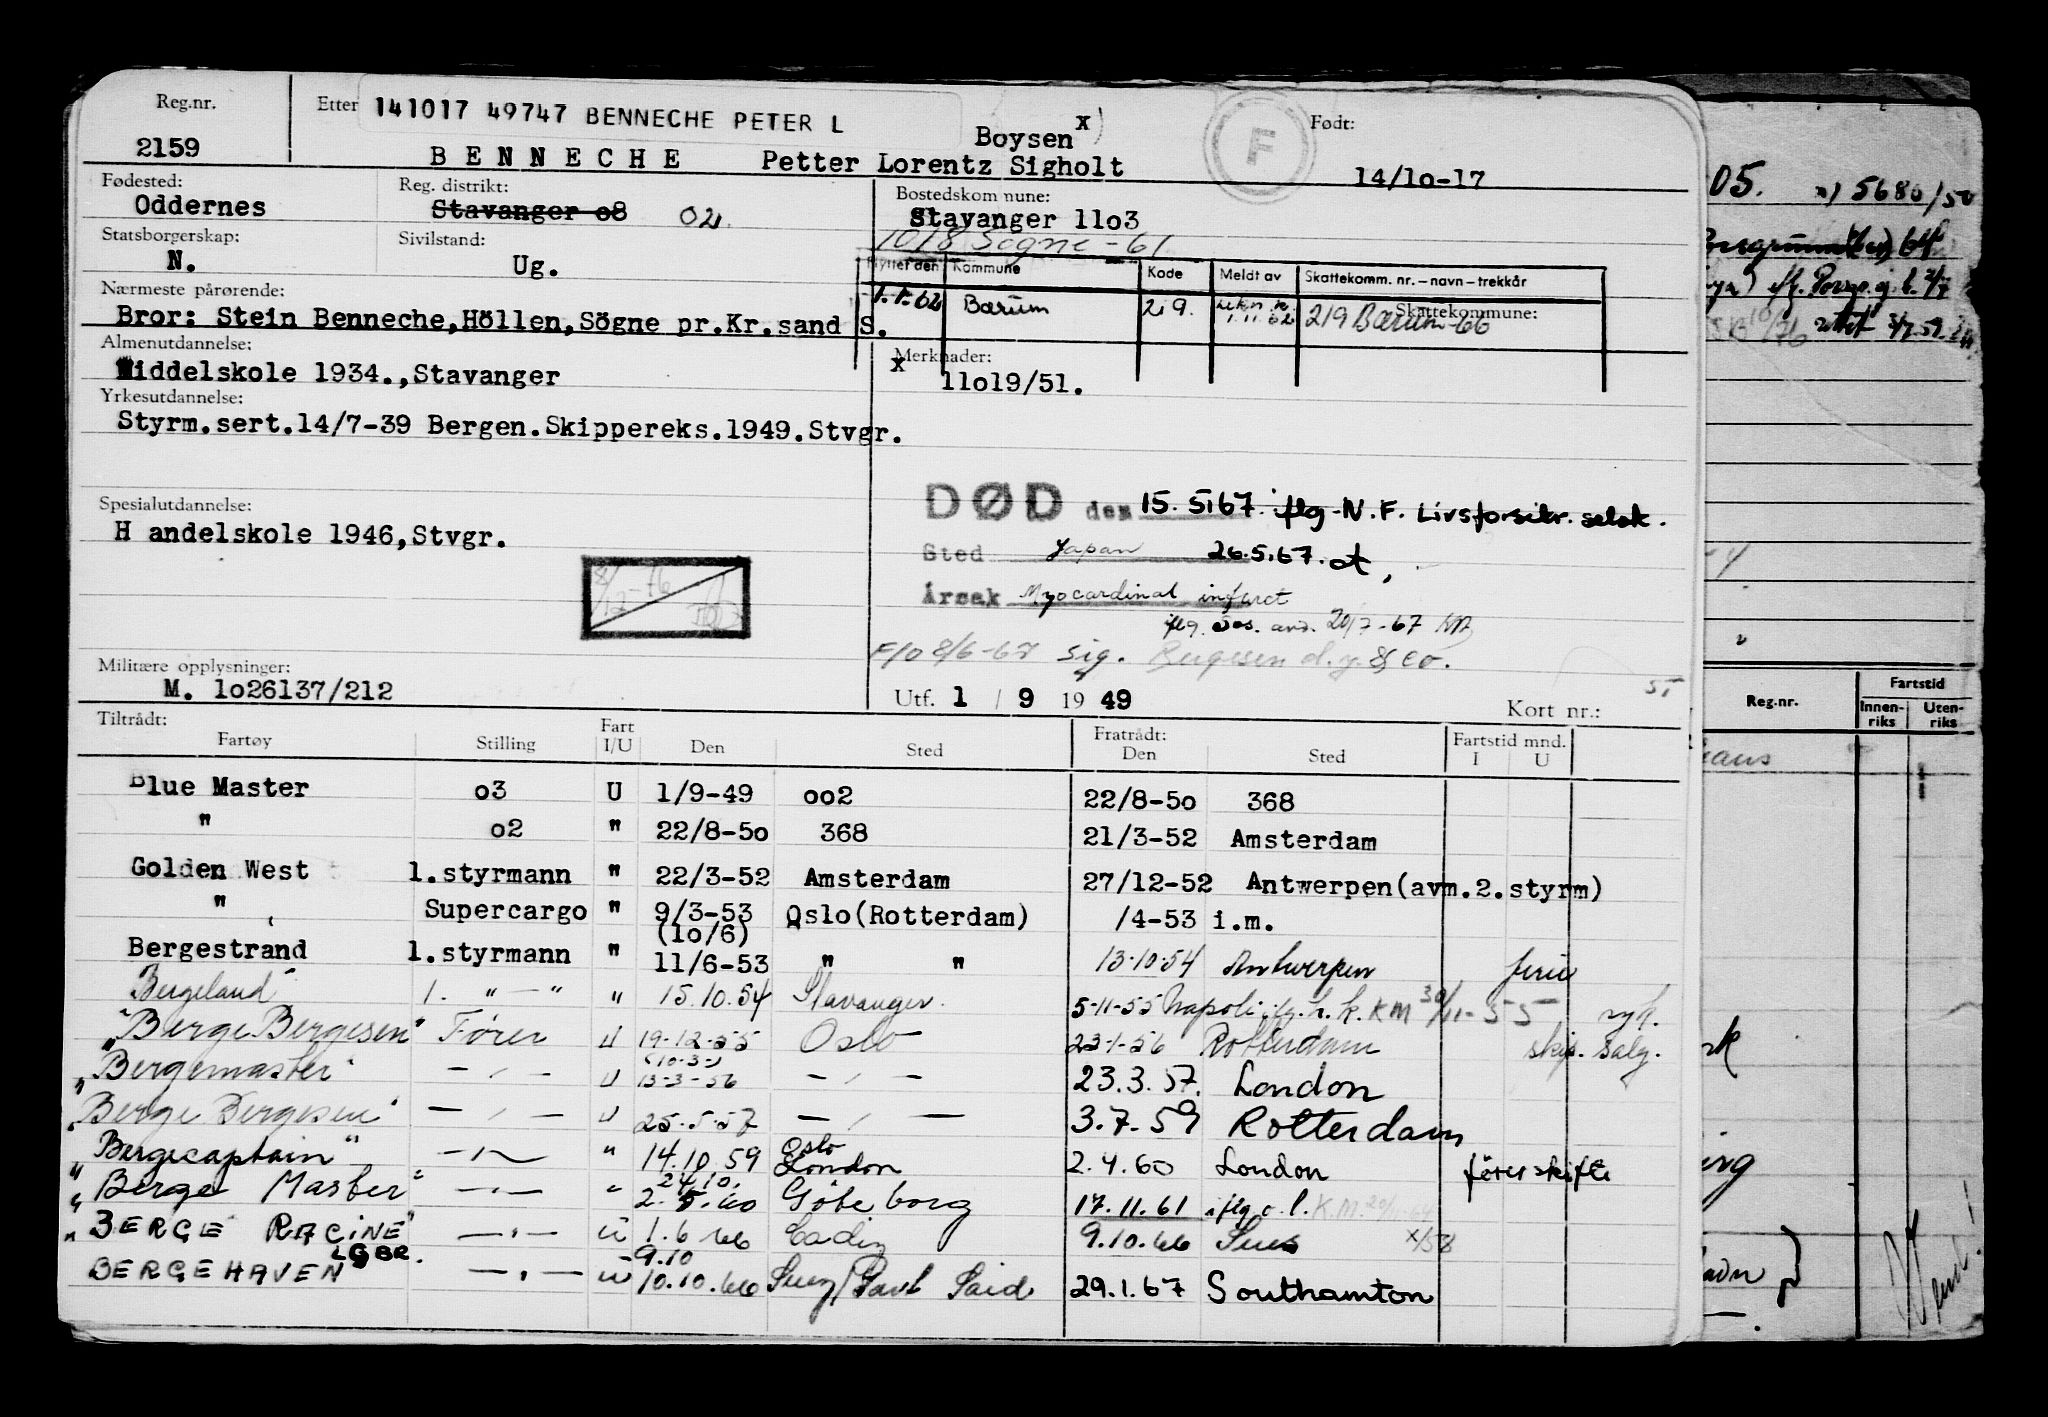 Reg.nr. Etter 141017 49747 BENNECHE PETER L Født:
Boysen x)
2159 BENNECHE Petter Lorentz Sigholt F 14/1o-17
Fødested: Reg. distrikt: Bostedskommune:
Oddernes Stavanger o8 02 Stavanger 11o3
1018 Søgne -61
Statsborgerskap: Sivilstand:
N. Ug.
Flyttet den Kommune Kode Meldt av Skattekomm. nr. – navn – trekkår
1.1.62 Bærum 219. 1.11.62 219 Bærum-66 Skattekommune:
Nærmeste pårørende:
Bror: Stein Benneche,Höllen,Sögne pr.Kr.sand S.
Almenutdannelse: Merknader:
Middelskole 1934.,Stavanger x 11o19/51.
Yrkesutdannelse:
Styrm.sert.14/7-39 Bergen.Skippereks.1949.Stvgr.
DØD den 15.5.67. iflg. N.F. Livsforsikr. selsk.
Spesialutdannelse:
H andelskole 1946,Stvgr.
Sted Japan 26.5.67.
Årsak Myocardinal infarct
iflg. 20/7-67
8/6-67 sig. Bergesen d.y. & Co.
Militære opplysninger:
M. 1o26137/212 Utf. 1 / 9 19 49 Kort nr.:
Tiltrådt: Fart Fratrådt: Fartstid mnd.
Fartøy Stilling I/U Den Sted Den Sted I U
Blue Master o3 U 1/9-49 oo2 22/8-5o 368
" o2 " 22/8-5o 368 21/3-52 Amsterdam
Golden West 1.styrmann " 22/3-52 Amsterdam 27/12-52 Antwerpen(avm.2.styrm)
" Supercargo " 9/3-53 Oslo(Rotterdam) /4-53 i.m.
(1o/6)
Bergestrand 1.styrmann " 11/6-53 " " 13-10-54 Antwerpen ferie
Bergeland 1. " — " " 15.10.54 Stavanger. 5-11-55 Napoli iflg. h.k. KM 30/11-55 syk.
"Berge Bergesen" Fører u 19-12-55 Oslo 23-1-56 Rotterdam skips. salg.
(10-3-)
"Bergemaster" — " — u 13-3-56 — " — 23.3.57. London
"Berge Bergesen" — " — u 25.5.57 — " — 3.7.59 Rotterdam
"Bergecaptain" — " — " 14.10.59 Oslo London 2.4.60 London fører skifte
24/10.
"Berge Master" — " — " 2.5.60 Göteborg 17.11.61 iflg. c.l. K.M.
"BERGE RACINE" — " — u 1.6.66 Cadiz 9.10.66 Sues x/58
LGBR. 9.10
BERGEHAVEN — " — u 10.10.66 Suez/Port Said 29.1.67 Southamton
05. x) 5680/50
Reg.nr. Fartstid
Innenriks Utenriks